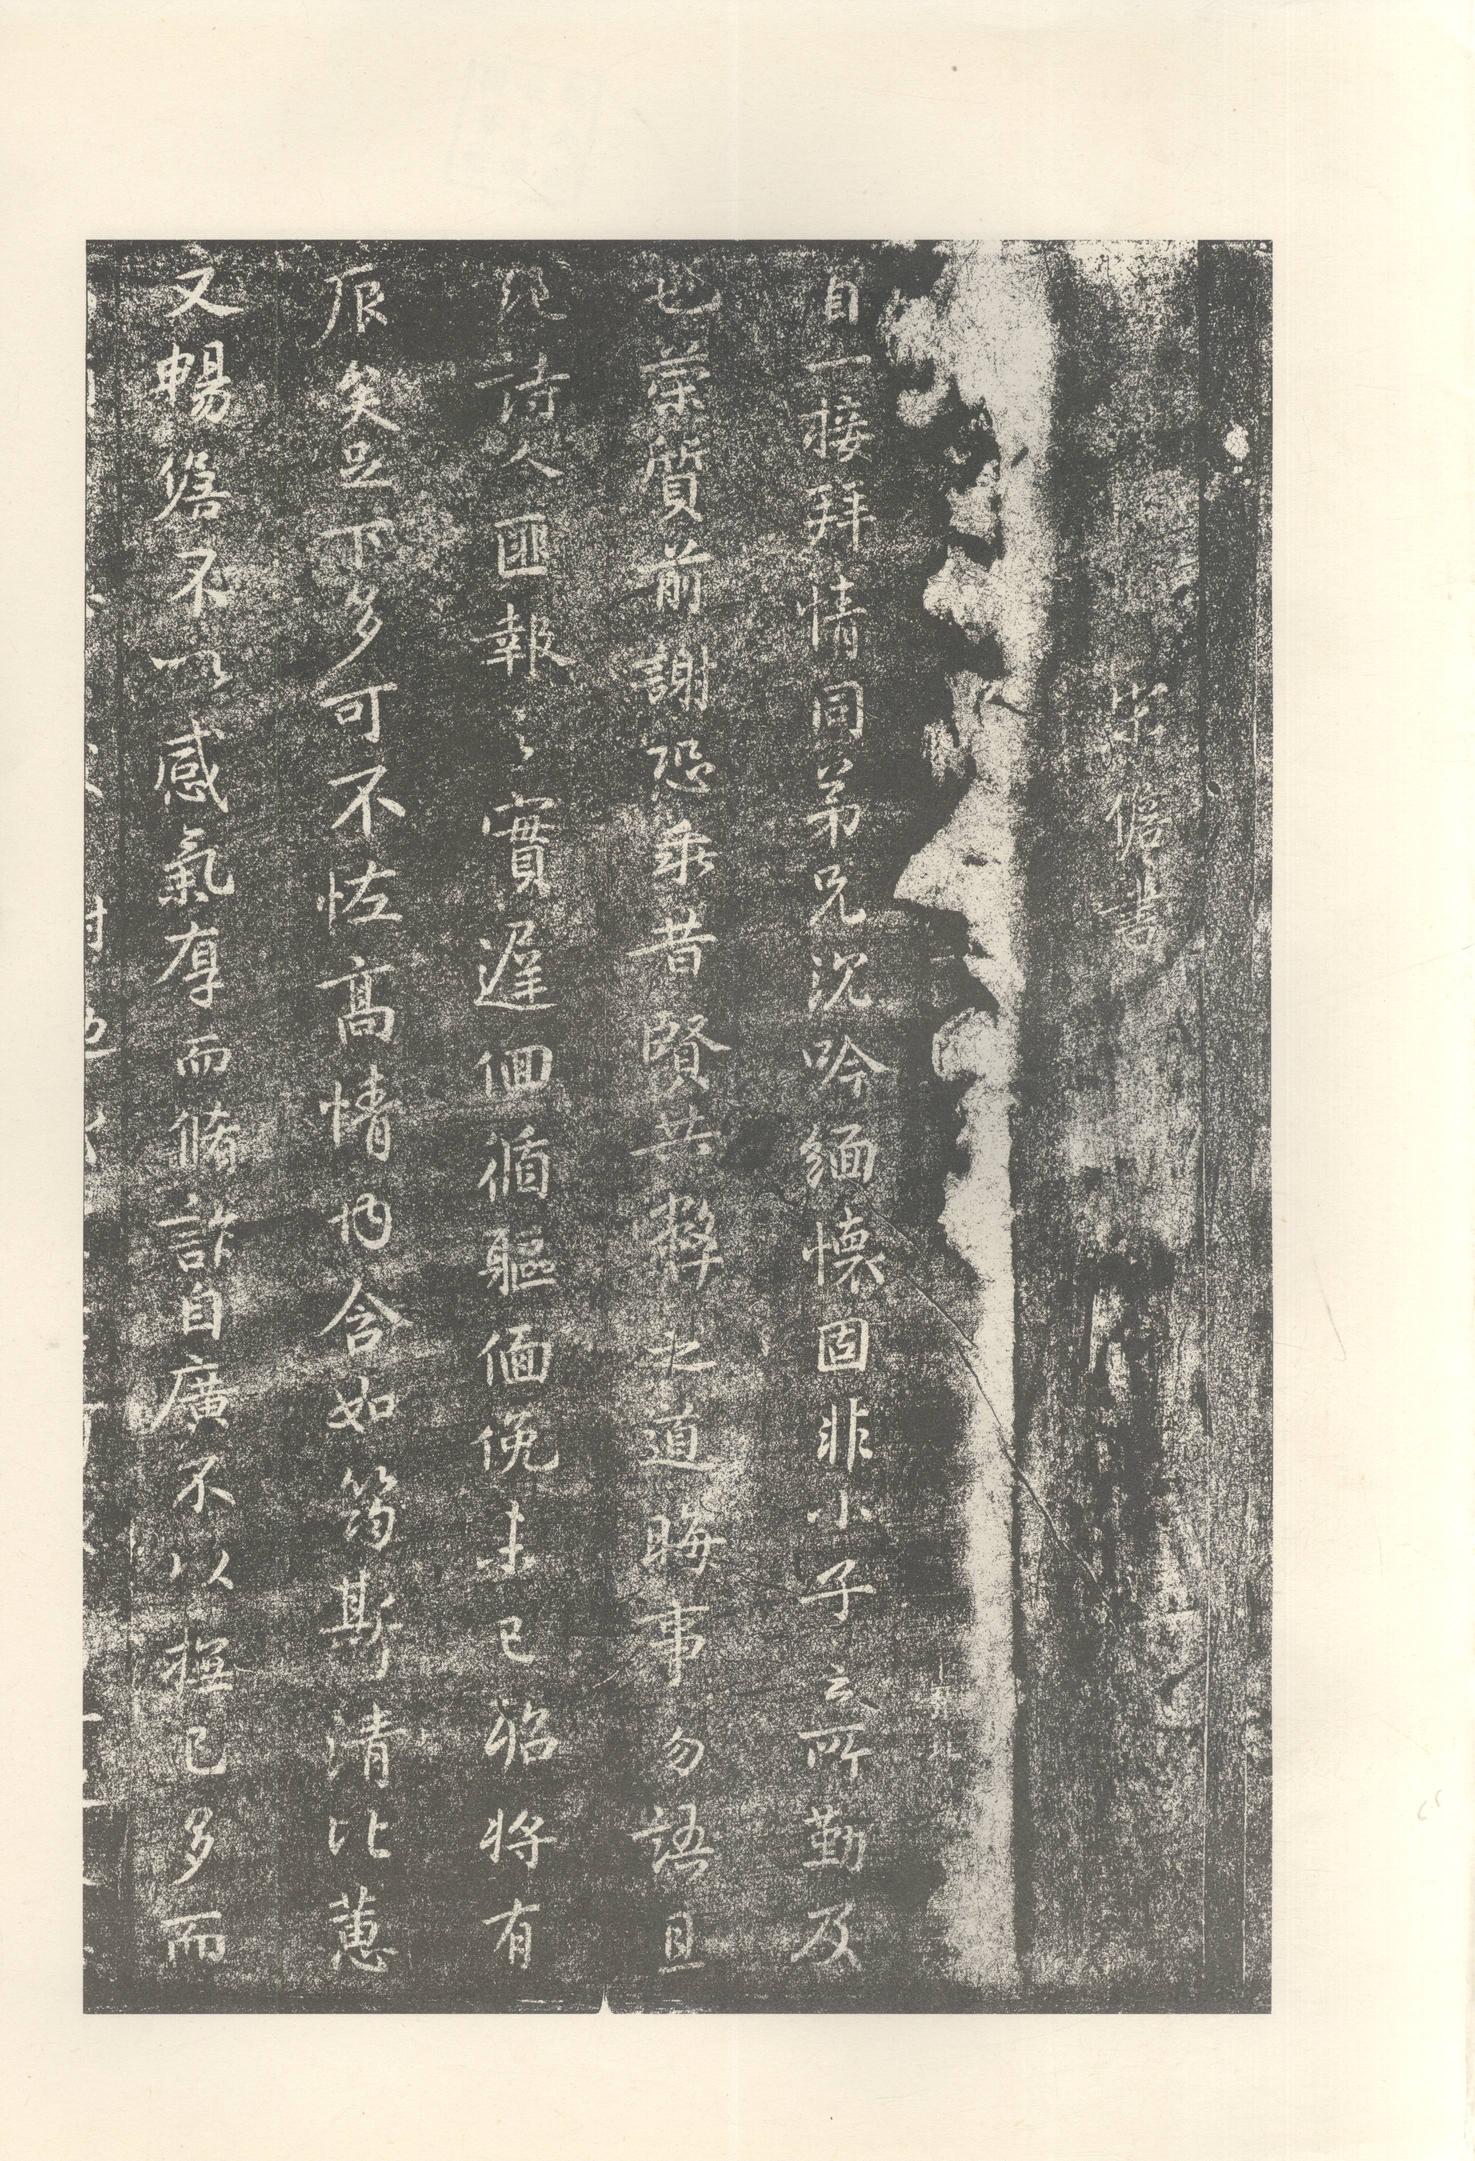 宋儋書
自一接拜情同弟兄沉吟緬懷固非小子之所勤及
也榮質前謝恐乖昔賢共弊之道晦事勿語且
詩人匪報之實遅佪循軀偭俛未已貽將有
辰矣足下多可不恠高情内含如筠斯清比蕙
又暢儋不以感氣厚而脩詐自廣不以摳已多而